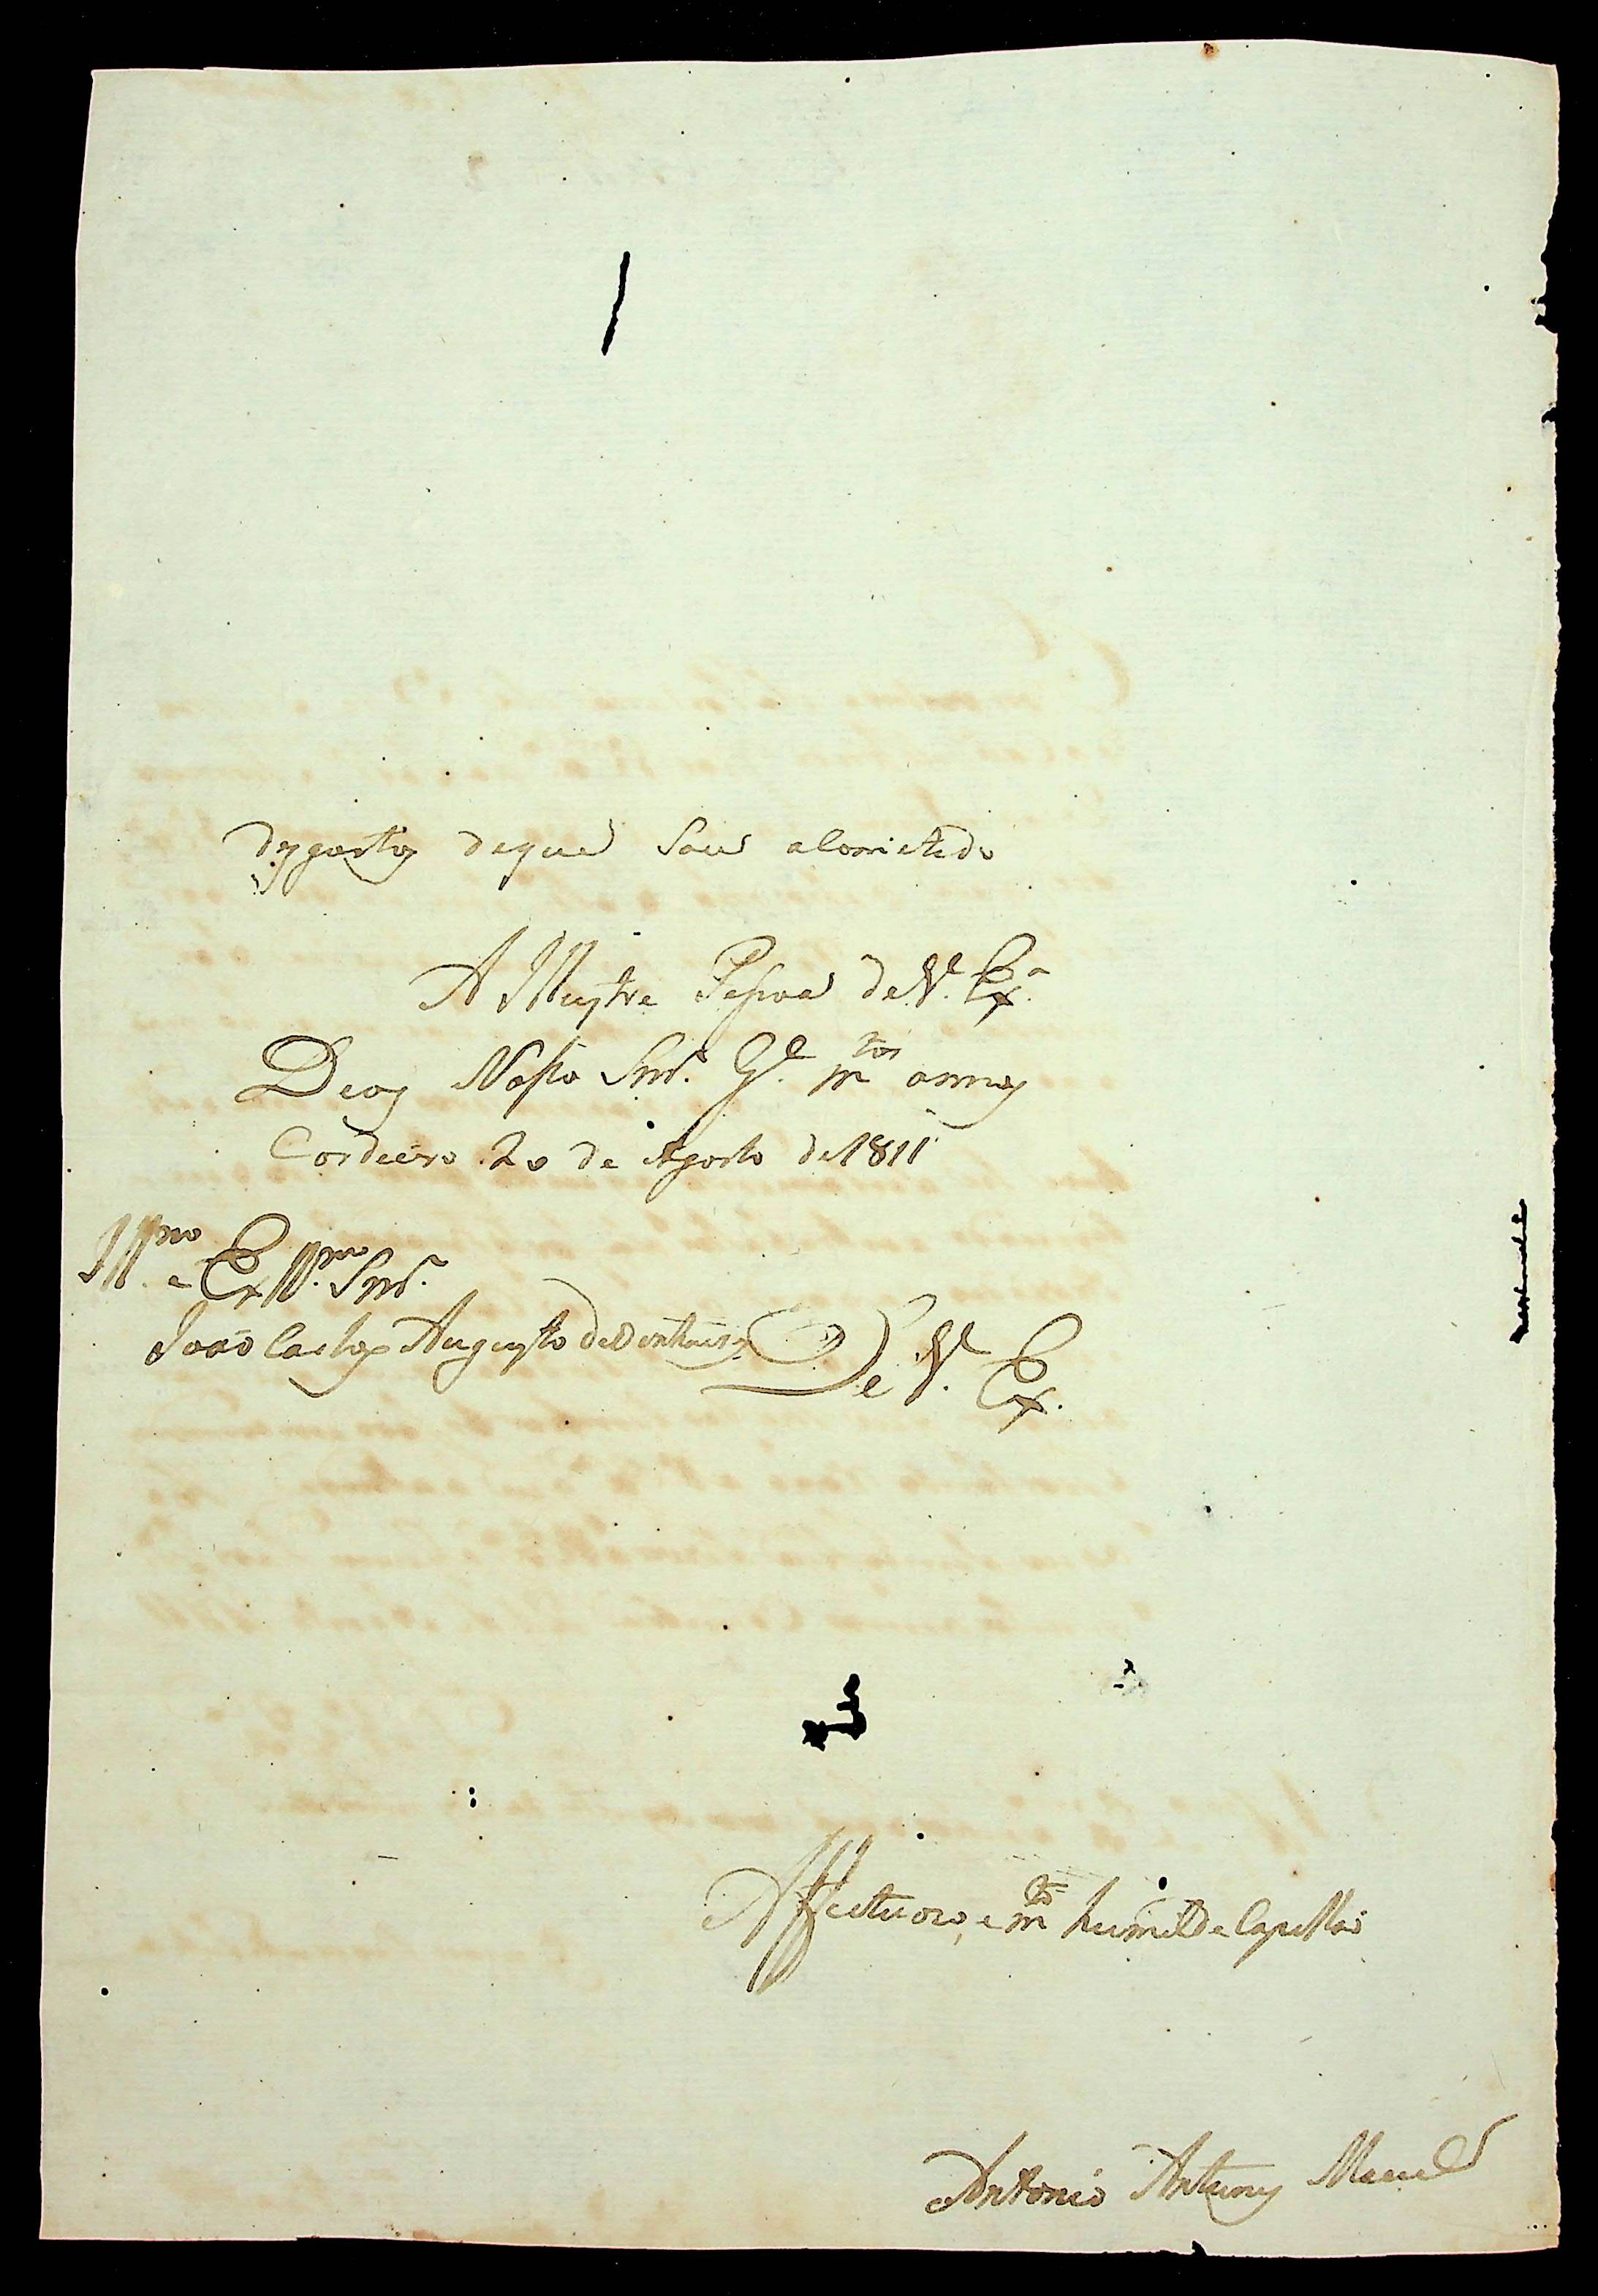 desgostos deque Sou
A Illustre Pessoa de V. Exª.
Deos Nosso Snr. Gᵉ. mᵗᵒˢ annos
Cordeiro 20 de Agosto de 1811
Illᵐᵒ. e Exᵐᵒ. Snr.
João Carlos Augusto de
De V. Ex.
Affectuozo, e mᵗᵒ humilde Capellão
Antonio Antunes Maciel